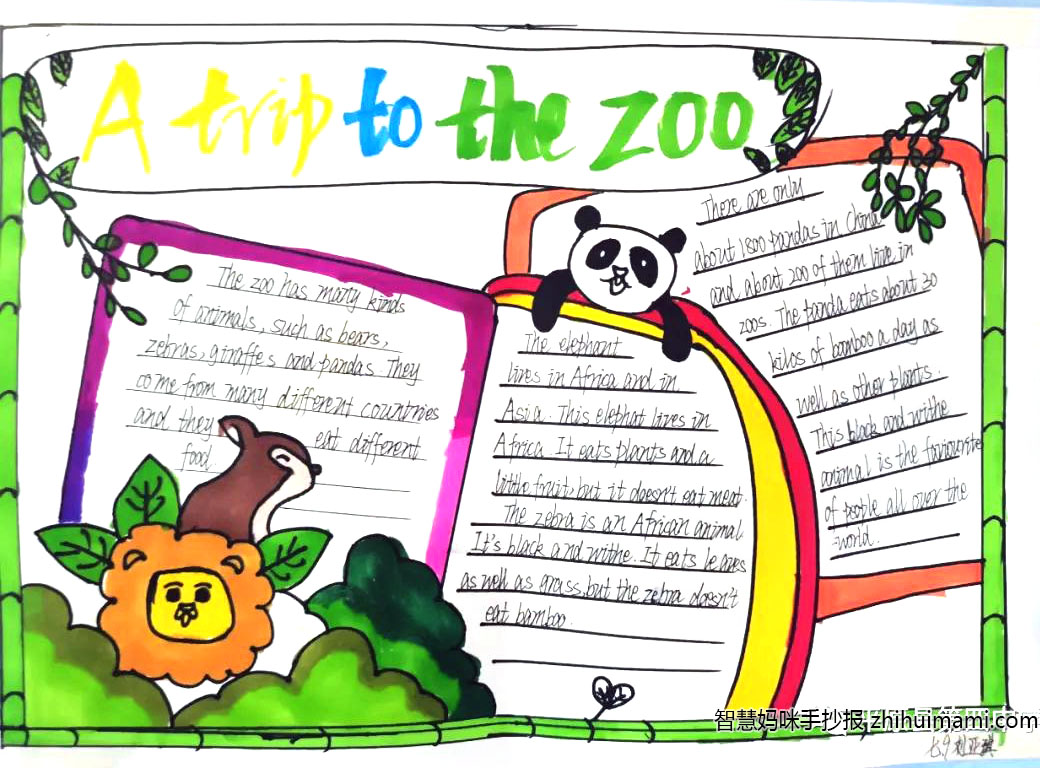 A trip to the zoo
The zoo has many kinds
of animals, such as bears,
zebras, giraffes and pandas. They
come from many different countries
and they eat different
food.
The elephant
lives in Africa and in
Asia. This elephat lives in
Africa. It eats plants and a
little fruit, but it doesn't eat meat.
The zebra is an African animal.
It's black and withe. It eats leaves
as well as grass, but the zebra doesn't
eat bamboo.
There are only
about 1800 pandas in China
and about 200 of them live in
zoos. The panda eats about 30
kilos of bamboo a day as
well as other plants.
This black and withe
animal is the favourite
of people all over the
world.
智慧妈咪手抄报 zhihuimami.com
七.9